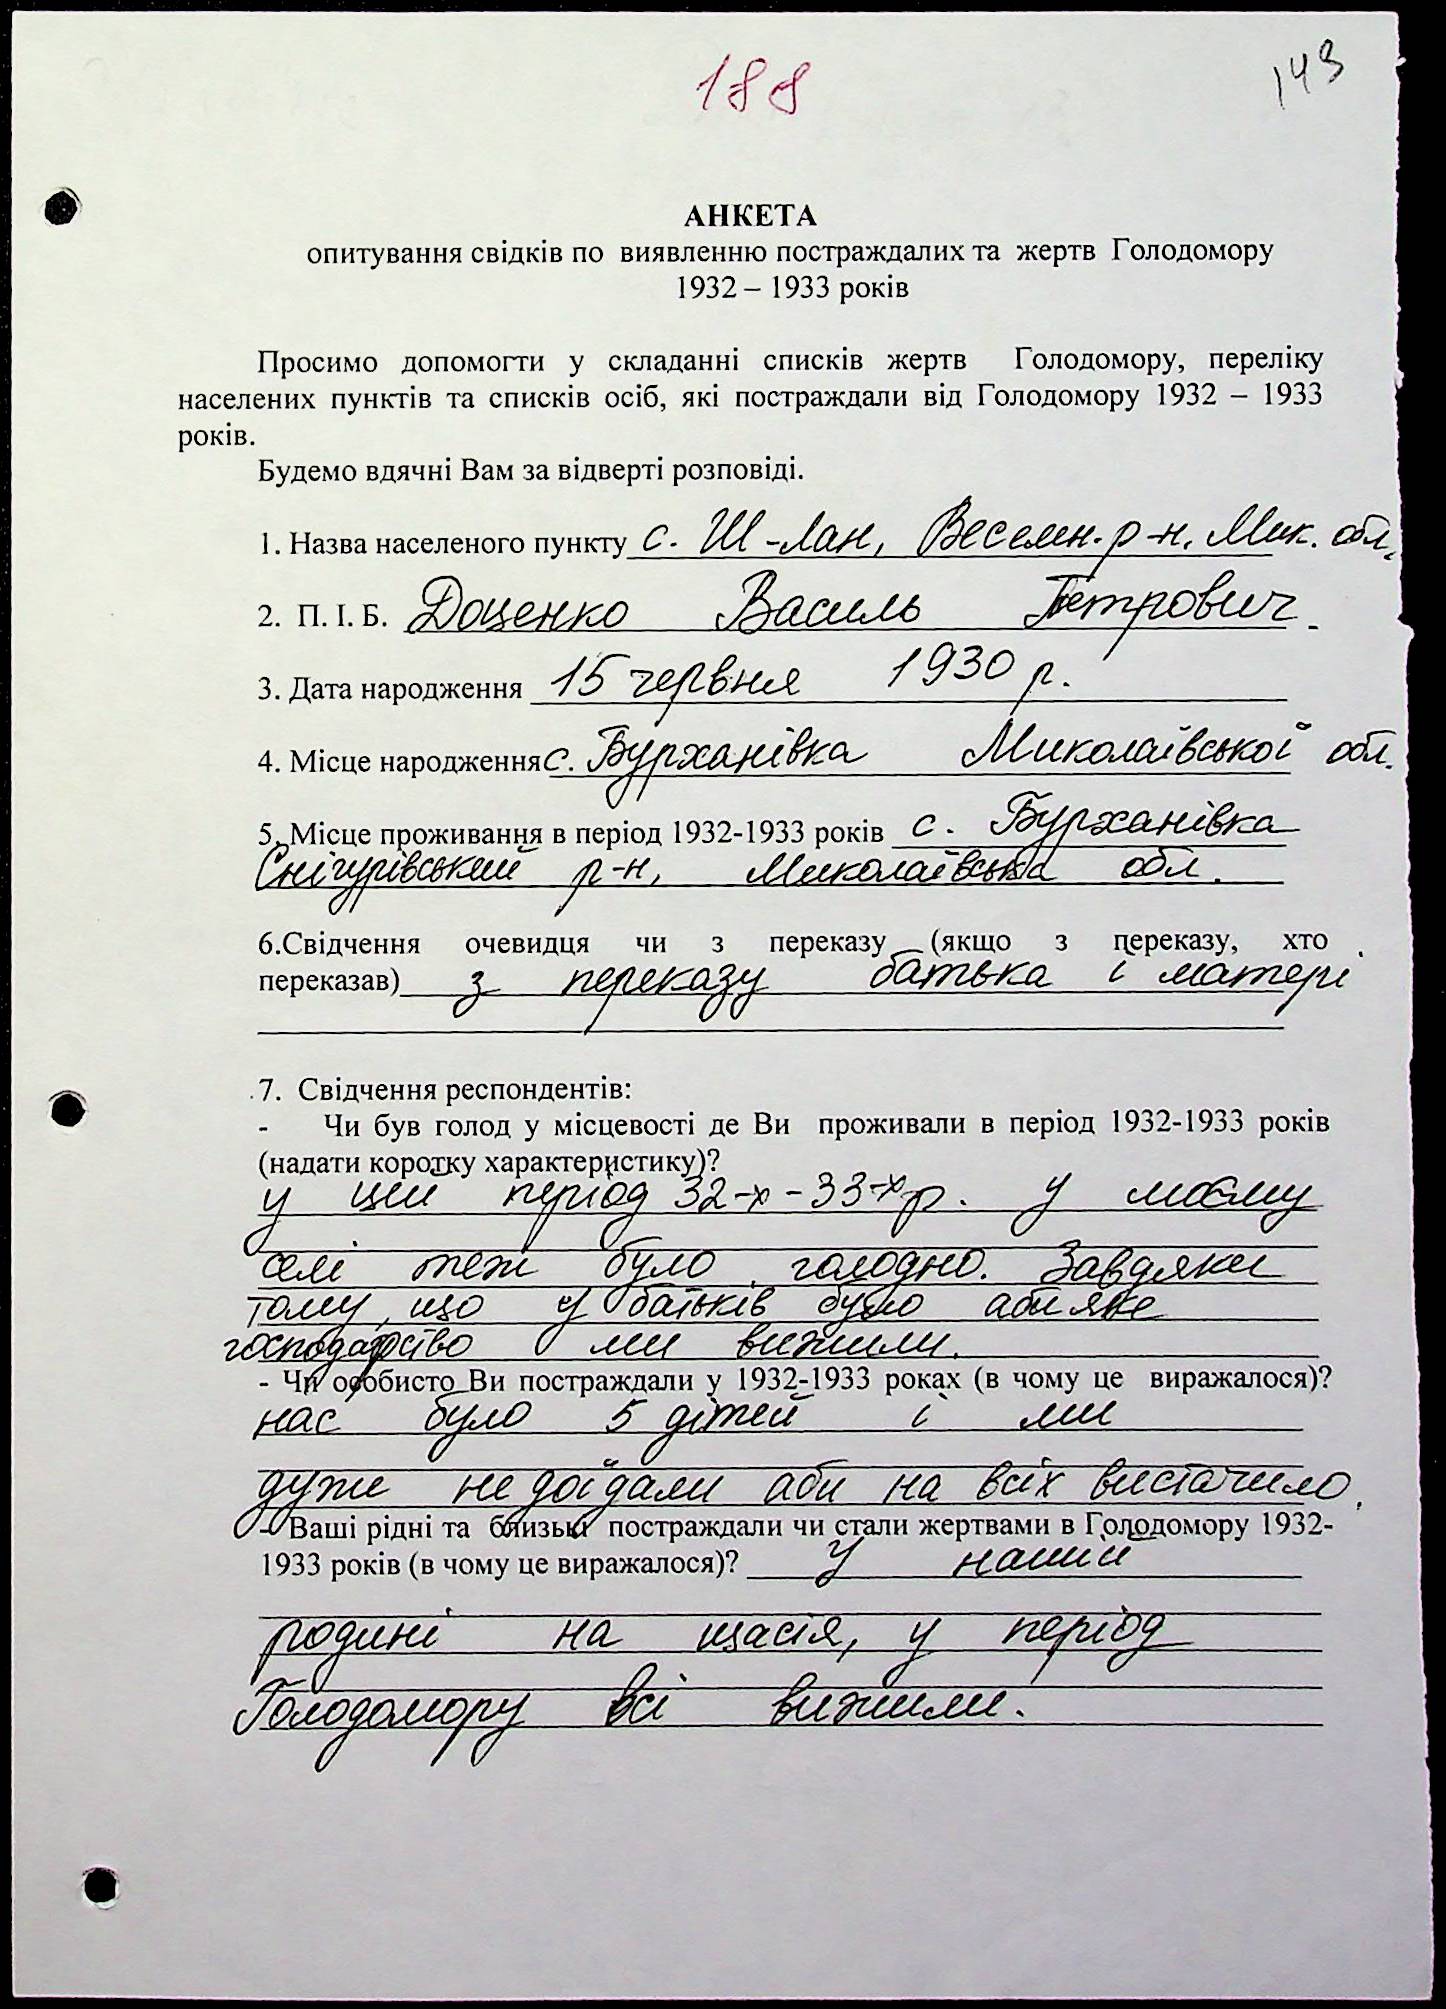 188
143
АНКЕТА
опитування свідків по виявленню постраждалих та жертв Голодомору
1932 – 1933 років
Просимо допомогти у складанні списків жертв Голодомору, переліку
населених пунктів та списків осіб, які постраждали від Голодомору 1932 – 1933
років.
Будемо вдячні Вам за відверті розповіді.
1. Назва населеного пункту с. Ш-Лан, Веселин. р-н. Мик. обл.
2. П. І. Б. Доценко Василь Петрович
3. Дата народження 15 червня 1930 р.
4. Місце народження с. Бурханівка Миколаївської обл.
5. Місце проживання в період 1932-1933 років с. Бурханівка
Снігурівський р-н, Миколаївська обл.
6.Свідчення очевидця чи з переказу (якщо з переказу, хто
переказав) з переказу батька і матері
7. Свідчення респондентів:
- Чи був голод у місцевості де Ви проживали в період 1932-1933 років
(надати коротку характеристику)?
у цей період 32-х - 33-х р. у моєму
селі теж було голодно. Завдяки
тому, що у батьків було абияке
господарство ми вижили.
- Чи особисто Ви постраждали у 1932-1933 роках (в чому це виражалося)?
нас було 5 дітей і ми
дуже недоїдали аби на всіх вистачило.
- Ваші рідні та близькі постраждали чи стали жертвами в Голодомору 1932-
1933 років (в чому це виражалося)? у нашій
родині на щасія, у період
Голодомору всі вижили.